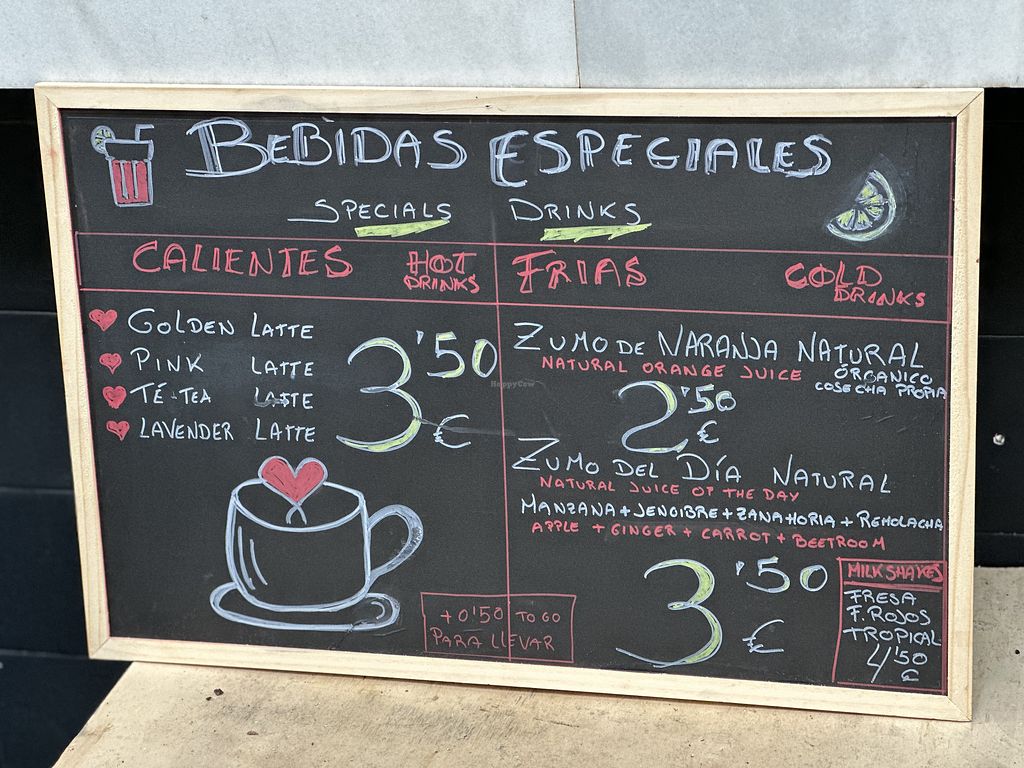 BEBIDAS ESPECIALES
SPECIALS DRINKS
CALIENTES HOT DRINKS
GOLDEN LATTE
PINK LATTE
TÉ-TEA LATTE
LAVENDER LATTE
3'50 €
+0'50 TO GO
PARA LLEVAR
FRIAS COLD DRINKS
ZUMO DE NARANJA NATURAL
NATURAL ORANGE JUICE ORGANICO
COSECHA PROPIA
2'50 €
ZUMO DEL DÍA NATURAL
NATURAL JUICE OF THE DAY
MANZANA + JENGIBRE + ZANAHORIA + REMOLACHA
APPLE + GINGER + CARROT + BEETROOM
3'50 €
MILKSHAKES
FRESA
F. ROJOS
TROPICAL
4'50 €
HappyCow